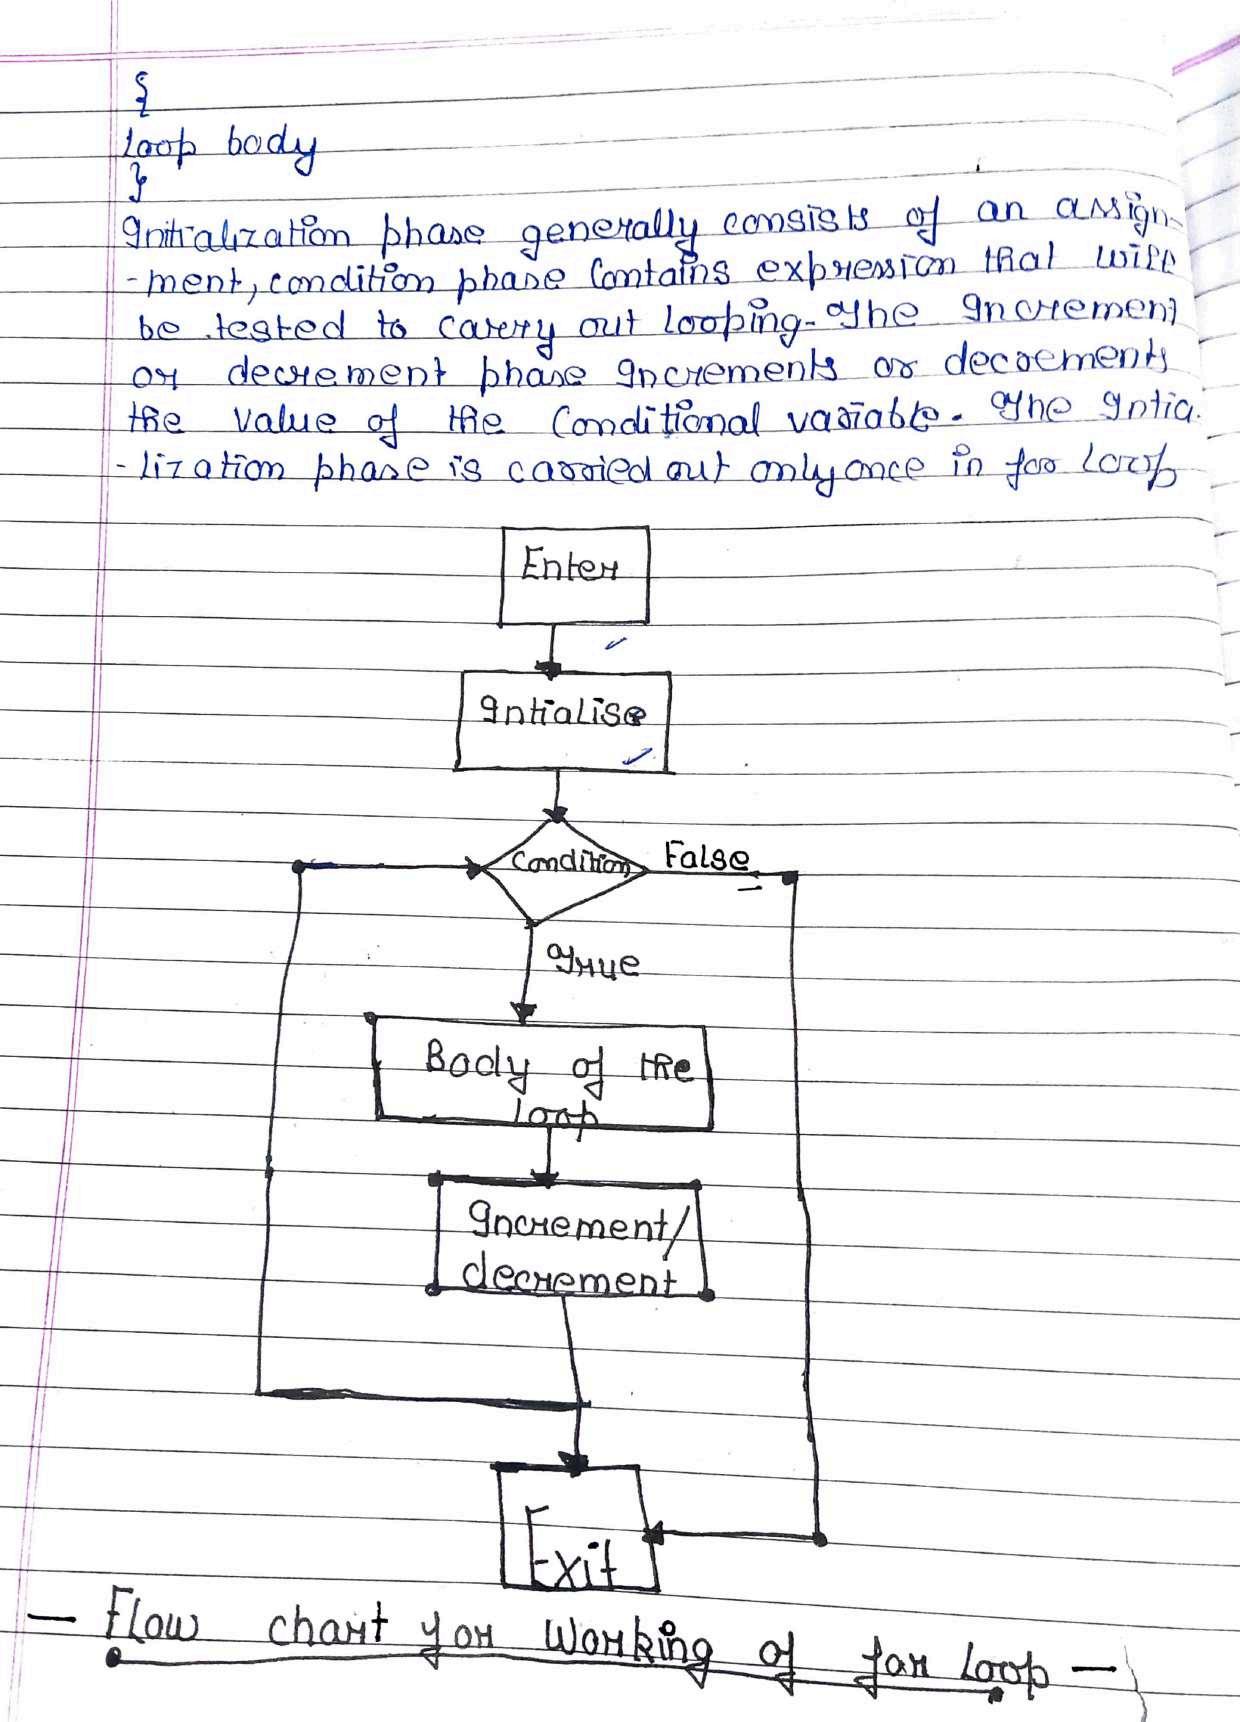 {
Loop body
}
Initialization phase generally consists of an assign-
-ment, condition phase Contains expression that will
be tested to carry out looping. The Increment
or decrement phase Increments or decrements
the value of the Conditional variable. The Intia
-lization phase is carried out only once in for Loop
Enter
Intialise
Condition
False
True
Body of the
Loop
Increment/
decrement
Exit
- Flow chart yor Working of for Loop -